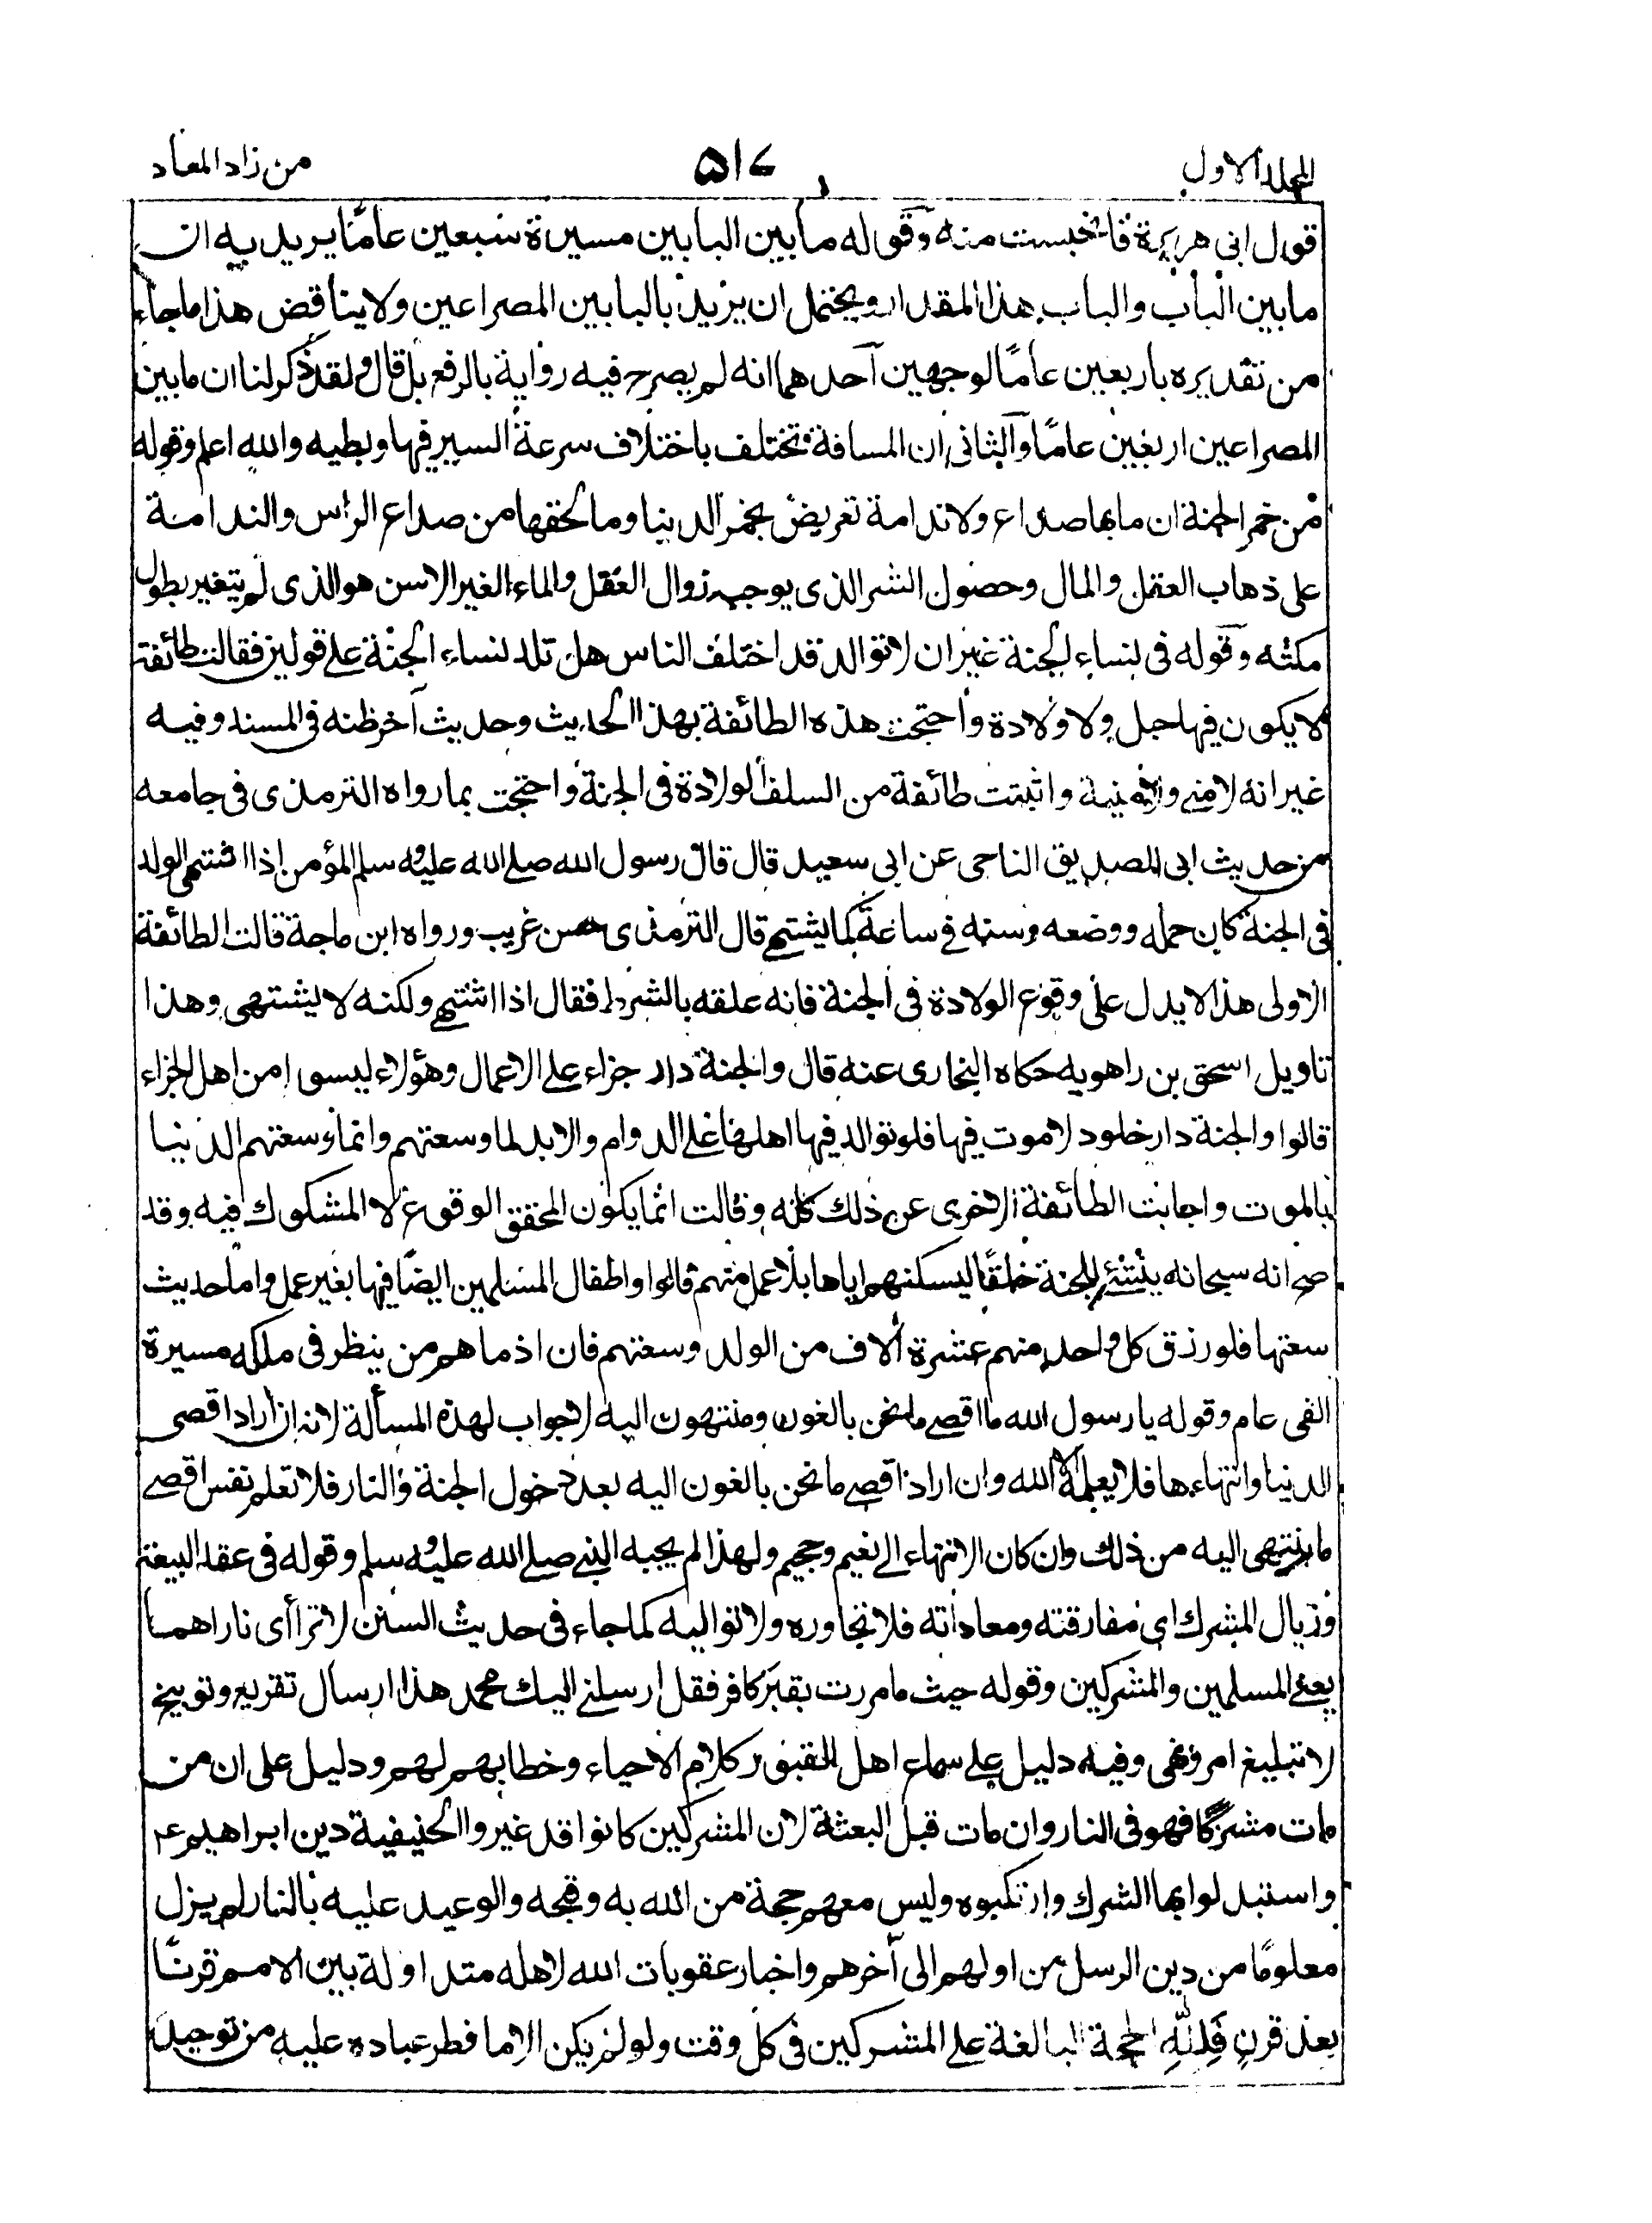 المجلد الاول
۵۱۷
من زاد المعاد
قول ابى هريرة فانخنست منه وقوله ما بين البابين مسيرة سبعين عامًا يريد به ان
ما بين الباب والباب هذا المقدار ويحتمل ان يريد بالبابين المصراعين ولا يناقض هذا ما جاء
من تقديره باربعين عامًا لوجهين احدهما انه لم يصرح فيه رواية بالرفع بل قال ولقد ذكر لنا ان ما بين
المصراعين اربعين عامًا والثانى ان المسافة تختلف باختلاف سرعة السير فيها وبطيه والله اعلم وقوله
من خمر الجنة ان ما بها صداع ولا ندامة تعريض بخمر الدنيا وما لحقها من صداع الراس والندامة
على ذهاب العقل والمال وحصول الشر الذى يوجبه زوال العقل والماء الغير الاسن هو الذى لم يتغير بطول
مكثه وقوله فى نساء الجنة غير ان لا توالد قد اختلف الناس هل تلد نساء الجنة على قولين فقالت طائفة
لا يكون فيها حبل ولا ولادة واحتجت هذه الطائفة بهذا الحديث وحديث آخر ظنه فى المسند وفيه
غير انه لا منى ولا منية واثبتت طائفة من السلف الولادة فى الجنة واحتجت بما رواه الترمذى فى جامعه
من حديث ابى الصديق الناجى عن ابى سعيد قال قال رسول الله صلى الله عليه وسلم المؤمن اذا اشتهى الولد
فى الجنة كان حمله ووضعه وسنه فى ساعة كما يشتهى قال الترمذى حسن غريب ورواه ابن ماجة قالت الطائفة
الاولى هذا لا يدل على وقوع الولادة فى الجنة فانه علقه بالشرط فقال اذا اشتهى ولكنه لا يشتهى وهذا
تاويل اسحق بن راهويه حكاه البخارى عنه قال والجنة دار جزاء على الاعمال وهؤلاء ليسوا من اهل الجزاء
قالوا والجنة دار خلود لا موت فيها فلو توالد فيها اهلها على الدوام والابد لما وسعتهم وانما وسعتهم الدنيا
بالموت واجابت الطائفة الاخرى عن ذلك كله وقالت انما يكون المحقق الوقوع لا المشكوك فيه وقد
صح انه سبحانه ينشئ للجنة خلقًا ليسكنهم اياها بلا عمل منهم قالوا واطفال المسلمين ايضًا فيها بغير عمل واما حديث
سعتها فلو رزق كل واحد منهم عشرة آلاف من الولد وسعتهم فان ادناهم من ينظر فى ملكه مسيرة
الفى عام وقوله يا رسول الله ما اقصى ما نحن بالغون ومنتهون اليه لا جواب لهذه المسألة لانه ان اراد اقصى
الدنيا وانتهاءها فلا يعلمه الا الله وان اراد اقصى ما نحن بالغون اليه بعد دخول الجنة والنار فلا تعلم نفس اقصى
ما ينتهى اليه من ذلك وان كان الانتهاء الى نعيم وجحيم ولهذا لم يجبه النبى صلى الله عليه وسلم وقوله فى عقد البيعة
وزيال المشرك اى مفارقته ومعاداته فلا تجاوره ولا تواليه كما جاء فى حديث السنن لا تراأى ناراهما
يعنى المسلمين والمشركين وقوله حيث ما مررت بقبر كافر فقل ارسلنى اليك محمد هذا ارسال تقريع وتوبيخ
لا تبليغ امر ونهى وفيه دليل على سماع اهل القبور كلام الاحياء وخطابهم لهم ودليل على ان من
مات مشركًا فهو فى النار وان مات قبل البعثة لان المشركين كانوا قد غيروا الحنيفية دين ابراهيم ع
واستبدلوا بها الشرك وارتكبوه وليس معهم حجة من الله به وقبحه والوعيد عليه بالنار لم يزل
معلومًا من دين الرسل من اولهم الى آخرهم واخبار عقوبات الله لاهله متداولة بين الامم قرنًا
بعد قرن فَلِلّٰهِ الحجة البالغة على المشركين فى كل وقت ولو لم يكن الا ما فطر عباده عليه من توحيد